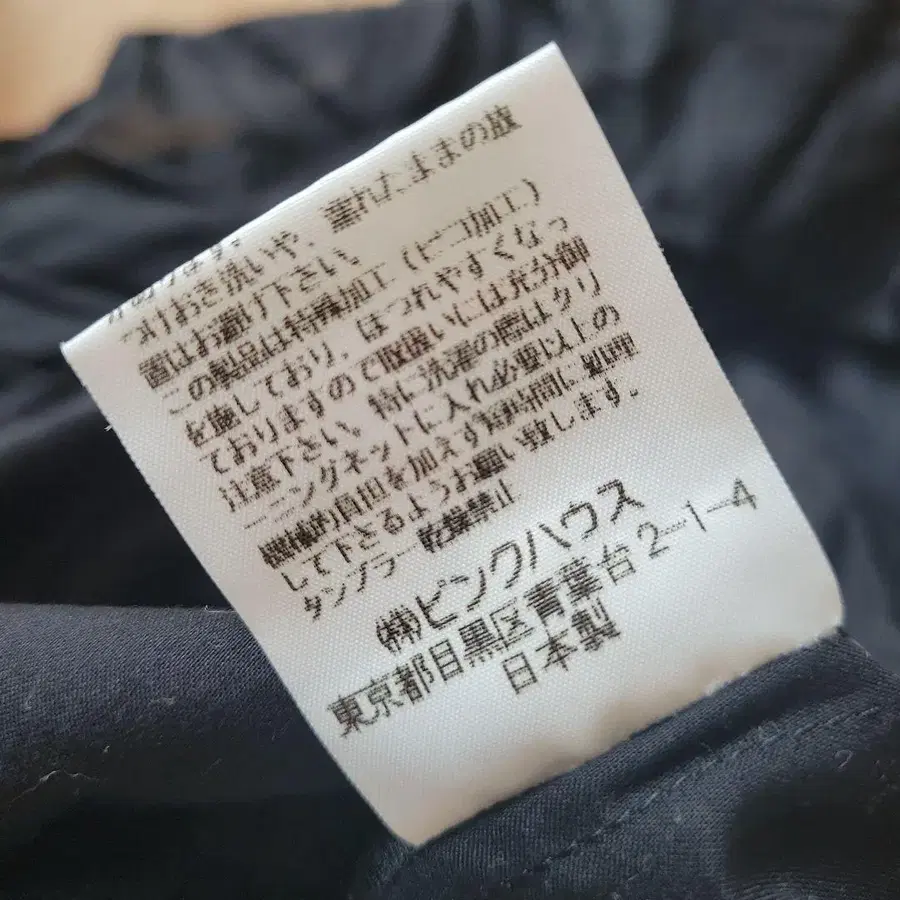 つけおき洗いや、濡れたままの放
置はお避け下さい。
この製品は特殊加工(ピコ加工)
を施しており、ほつれやすくなっ
ておりますので取扱いには充分御
注意下さい。特に洗濯の際はクリ
ーニングネットに入れ必要以上の
機械的負担を加えず短時間に処理
して下さるようお願い致します。
タンブラー乾燥禁止
㈱ピンクハウス
東京都目黒区青葉台2-1-4
日本製